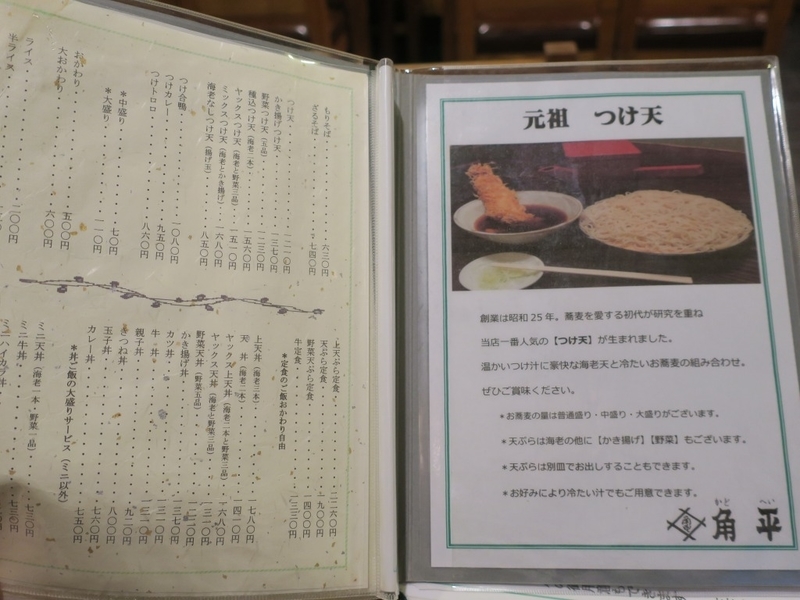 もりそば 六三〇円
ざるそば 七四〇円
つけ天 一二一〇円
かき揚げつけ天 一三七〇円
野菜つけ天（五品） 一二三〇円
種込つけ天（海老二本） 一五六〇円
ヤックスつけ天（海老と野菜三品） 一五一〇円
ミックスつけ天（海老とかき揚げ） 一六八〇円
海老なしつけ天（揚げ玉） 八五〇円
つけ合鴨 一〇八〇円
つけカレー 九五〇円
つけトロロ 八六〇円
＊中盛り 七〇円
＊大盛り 一一〇円
おかわり 五〇〇円
大おかわり 六〇〇円
ライス 二〇〇円
半ライス
上天ぷら定食 二二六〇円
天ぷら定食 一九〇〇円
野菜天ぷら定食 一四〇〇円
牛定食 一三三〇円
＊定食のご飯おかわり自由
上天丼（海老三本） 一七八〇円
天丼（海老二本） 一四一〇円
ヤックス上天丼（海老二本と野菜三品） 一六八〇円
ヤックス天丼（海老と野菜三品） 一三一〇円
野菜天丼（野菜五品）
かき揚げ丼
カツ丼
牛丼
親子丼
きつね丼 九二〇円
玉子丼 八〇〇円
カレー丼 七六〇円
＊丼ご飯の大盛りサービス（ミニ以外）
ミニ天丼（海老一本・野菜一品） 七三〇円
ミニ牛丼 七三〇円
ミニハイカラ丼
元祖 つけ天
創業は昭和25年。蕎麦を愛する初代が研究を重ね
当店一番人気の【つけ天】が生まれました。
温かいつけ汁に豪快な海老天と冷たいお蕎麦の組み合わせ。
ぜひご賞味ください。
＊お蕎麦の量は普通盛り・中盛り・大盛りがございます。
＊天ぷらは海老の他に【かき揚げ】【野菜】もございます。
＊天ぷらは別皿でお出しすることもできます。
＊お好みにより冷たい汁でもご用意できます。
かど へい
角平